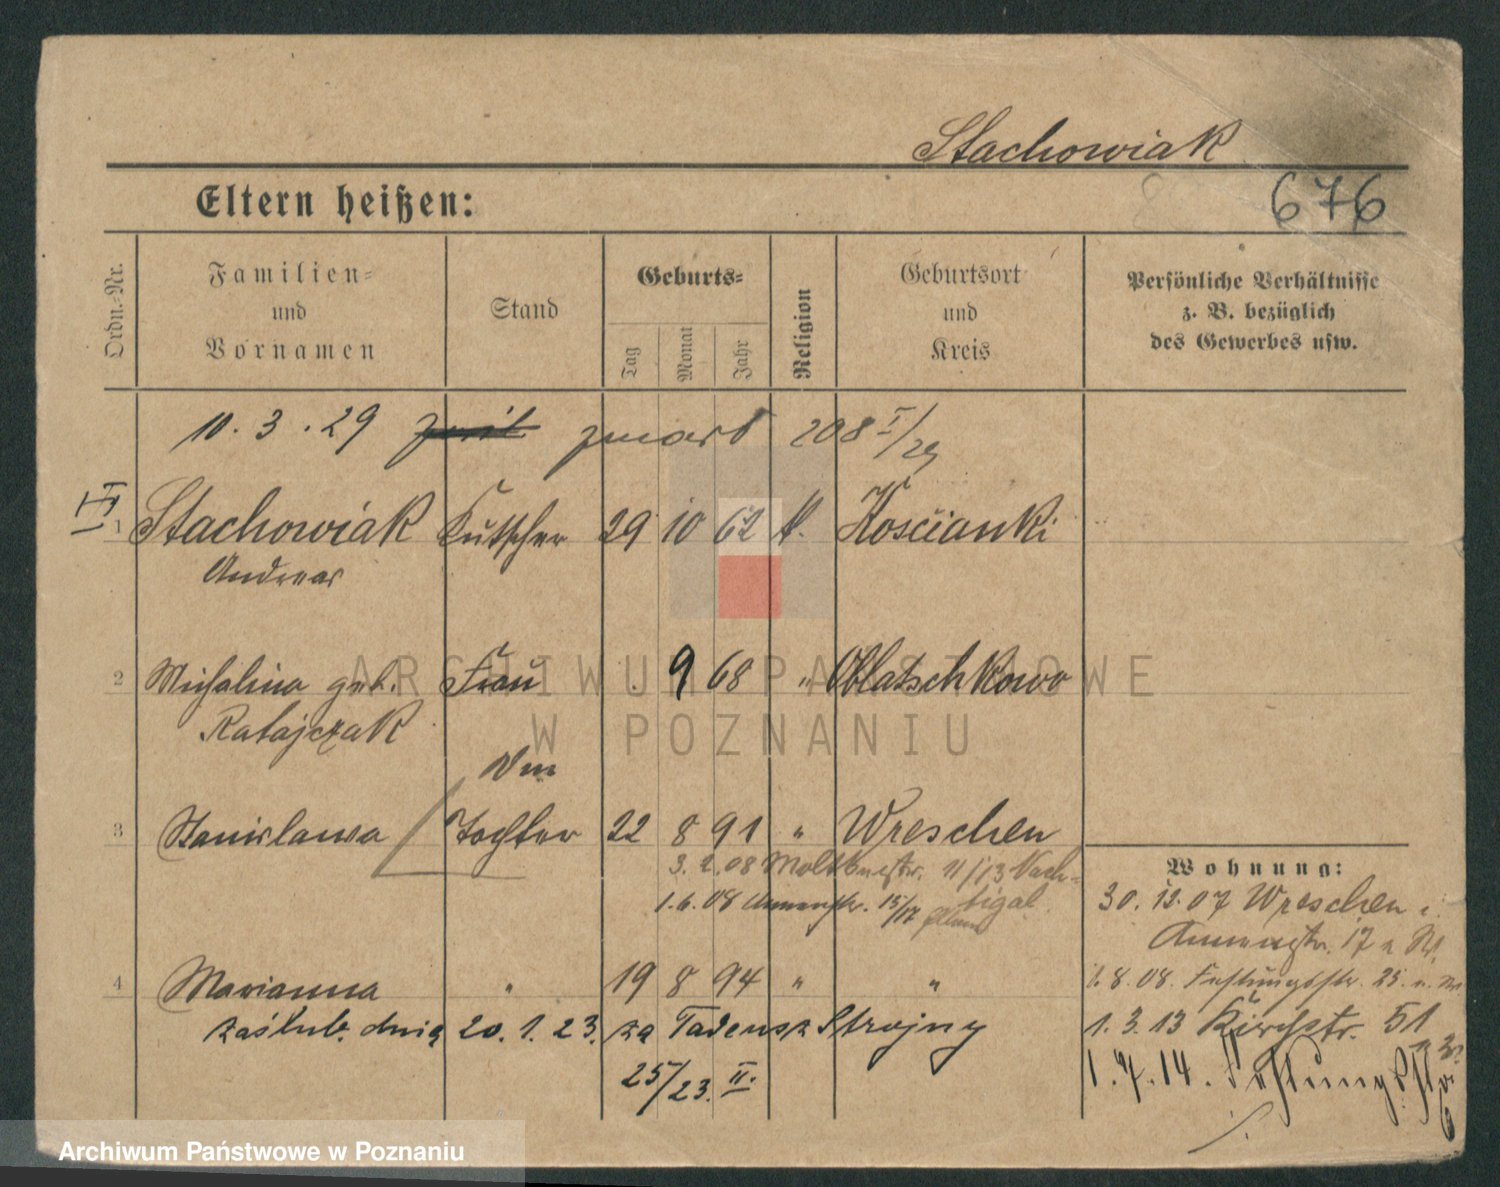 Stachowiak
Eltern heißen:
676
Ordn.-Nr.
Familien-
und
Vornamen
Stand
Geburts-
Tag
Monat
Jahr
Religion
Geburtsort
und
Kreis
Persönliche Verhältnisse
z. B. bezüglich
des Gewerbes usw.
10. 3. 29 zmarł 208 I/29
1 Stachowiak Kutscher 29 10 62 k. Kościanki
Andreas
2 Michalina geb. Frau 9 68 " Oblatschkowo
Ratajczak
3 Stanislawa Tochter 22 8 91 " Wreschen
Wohnung:
3. 2. 08 11/13 Nach-
tigal
1. 6. 08 15/17
30. 12. 07 Wreschen
17
4 Marianna " 19 8 94 " "
1. 8. 08. Festungsstr. 25.
zaślub. dnia 20. 1. 23. za Tadeusz Strojny
1. 3. 13 Kirchstr. 51
25/23. II.
1. 14. Festungsstr
ARCHIWUM PAŃSTWOWE
W POZNANIU
Archiwum Państwowe w Poznaniu